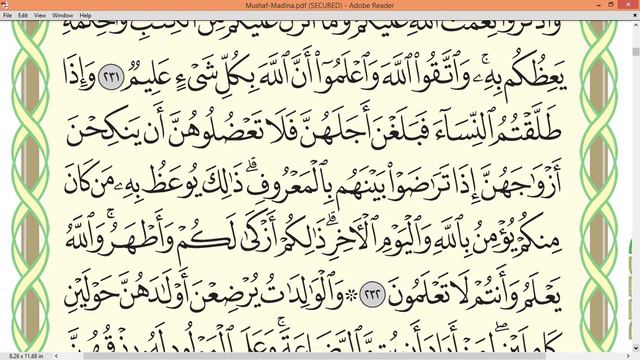 Mushaf-Madina.pdf (SECURED) - Adobe Reader
File Edit View Window Help
وَاذْكُرُوا۟ نِعْمَتَ ٱللَّهِ عَلَيْكُمْ وَمَآ أَنزَلَ عَلَيْكُم مِّنَ ٱلْكِتَٰبِ وَٱلْحِكْمَةِ
يَعِظُكُم بِهِۦ ۚ وَٱتَّقُوا۟ ٱللَّهَ وَٱعْلَمُوٓا۟ أَنَّ ٱللَّهَ بِكُلِّ شَىْءٍ عَلِيمٌ ٢٣١ وَإِذَا
طَلَّقْتُمُ ٱلنِّسَآءَ فَبَلَغْنَ أَجَلَهُنَّ فَلَا تَعْضُلُوهُنَّ أَن يَنكِحْنَ
أَزْوَٰجَهُنَّ إِذَا تَرَٰضَوْا۟ بَيْنَهُم بِٱلْمَعْرُوفِ ۗ ذَٰلِكَ يُوعَظُ بِهِۦ مَن كَانَ
مِنكُمْ يُؤْمِنُ بِٱللَّهِ وَٱلْيَوْمِ ٱلْءَاخِرِ ۗ ذَٰلِكُمْ أَزْكَىٰ لَكُمْ وَأَطْهَرُ ۗ وَٱللَّهُ
يَعْلَمُ وَأَنتُمْ لَا تَعْلَمُونَ ٢٣٢ ۞ وَٱلْوَٰلِدَٰتُ يُرْضِعْنَ أَوْلَٰدَهُنَّ حَوْلَيْنِ
كَامِلَيْنِ ۖ لِمَنْ أَرَادَ أَن يُتِمَّ ٱلرَّضَاعَةَ ۚ وَعَلَى ٱلْمَوْلُودِ لَهُۥ رِزْقُهُنَّ
8.26 x 11.68 in